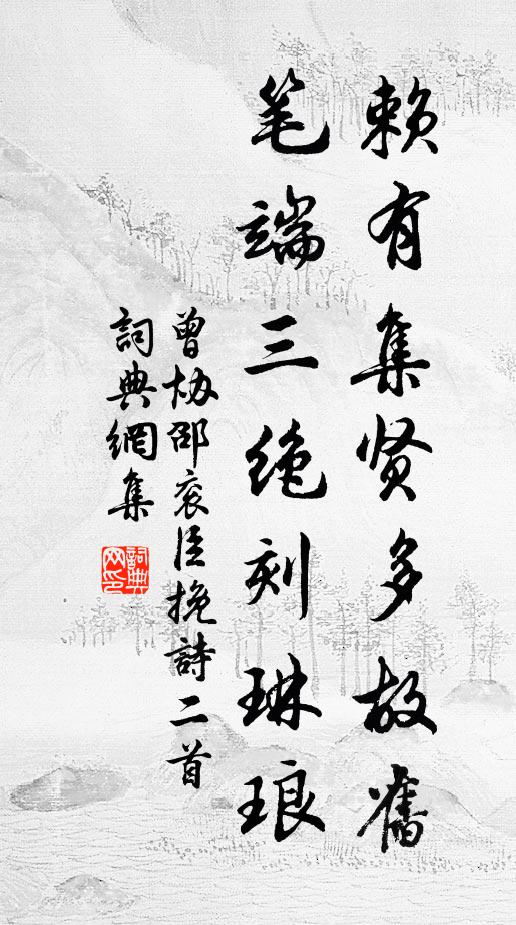 赖有集贤多故舊
笔端三绝刻琳琅
曾协邵衮臣挽詩二首
詞典網集
詞典网印